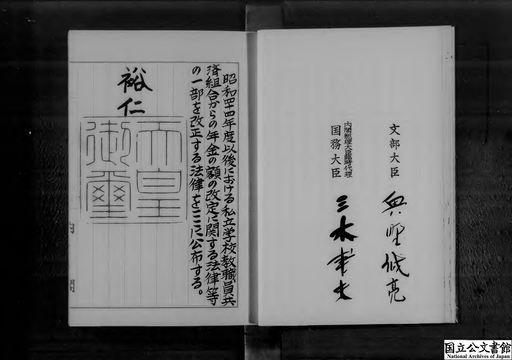 文部大臣 奥野誠亮
内閣総理大臣臨時代理
国務大臣 三木武夫
昭和四十四年度以後における私立学校教職員共
済組合からの年金の額の改定に関する法律等
の一部を改正する法律をここに公布する。
裕仁
天皇
御璽
国立公文書館
National Archives of Japan